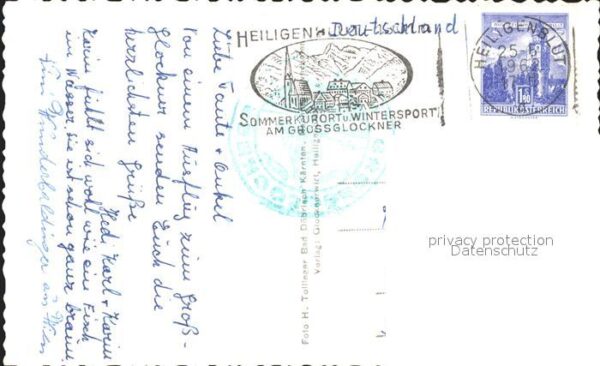 Liebe Tante + Onkel
Von einem Ausflug zum Groß-
glockner senden Euch die
herzlichsten Grüße
Hedi, Karl + Karin
Karin fühlt sich wohl wie ein Fisch
im Wasser, sie ist schon ganz braun.
Deutschland
HEILIGENBLUT
SOMMERKURORT U. WINTERSPORT
AM GROSSGLOCKNER
HEILIGENBLUT
25
196
1.80
REPUBLIK ÖSTERREICH
Foto H. Tollinger Bad Döbriach Kärnten.
Verlag: Glocknerwirt, Heilig
privacy protection
Datenschutz